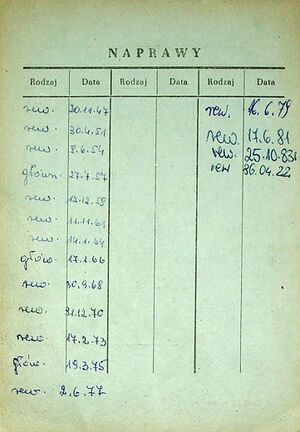 NAPRAWY
Rodzaj Data Rodzaj Data Rodzaj Data
rew. 20.11.47
rew. 30.4.51
rew. 2.6.54
główn. 27.7.57
rew. 12.12.59
rew. 11.11.61
rew. 14.1.64
głów. 17.1.66
rew. 30.9.68
rew. 31.12.70
rew. 17.2.73
głów. 19.3.75
rew. 2.6.77
rew. 16.6.79
rew. 17.6.81
rew. 25.10.83
rew 86.04.22